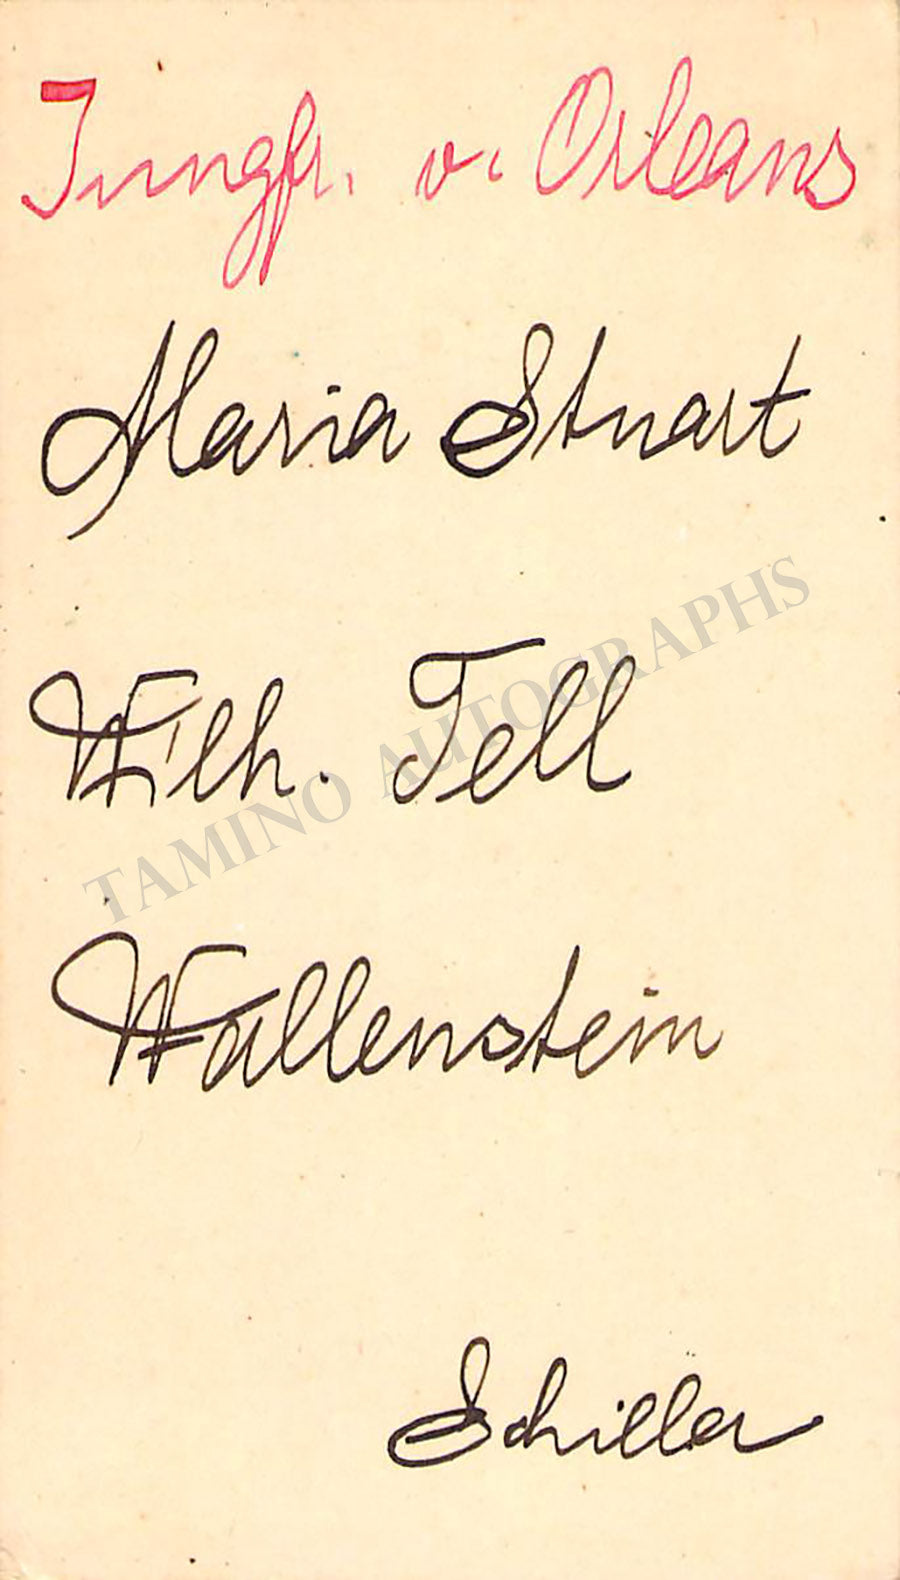 Jungfr. v. Orleans
Maria Stuart
Wilh. Tell
TAMINO AUTOGRAPHS
Wallenstein
Schiller